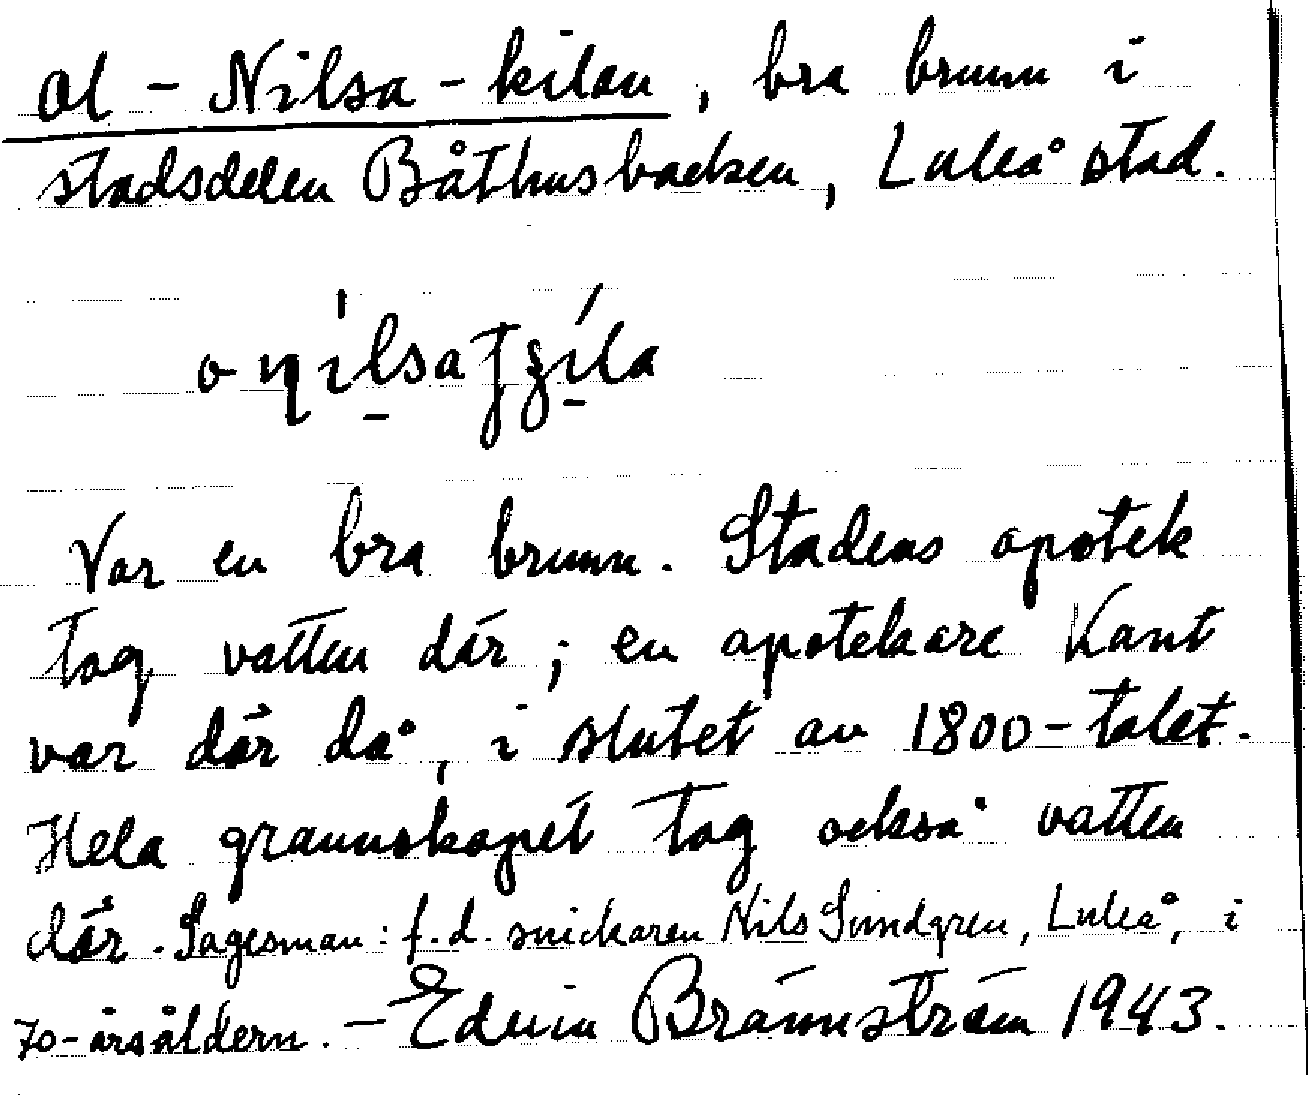 Ol - Nilsa - kilan, bra brunn i
stadsdelen Båthusbacken, Luleå stad.
Var en bra brunn. Stadens apotek
tog vatten där; en apotekare Kant
var där då, i slutet av 1800-talet.
Hela grannskapet tog också vatten
där. Sagesman: f.d. snickaren Nils Sundgren, Luleå, i
70-årsåldern. - Edvin Brännström 1943.